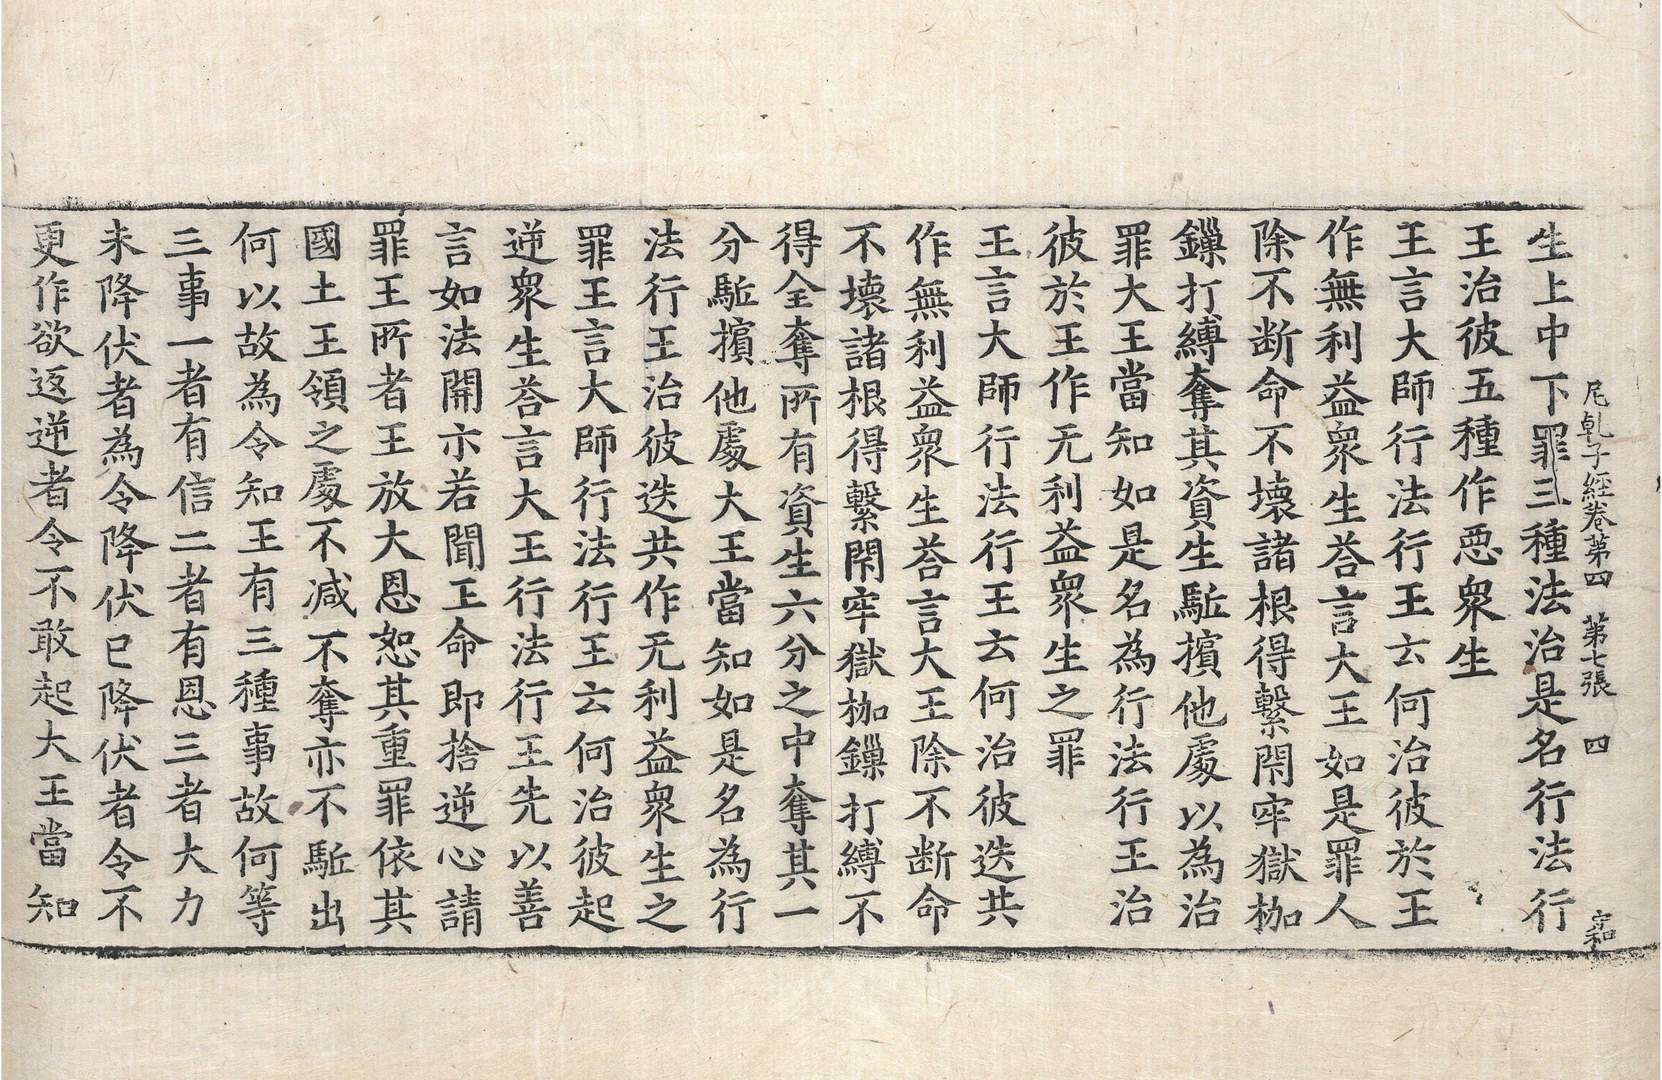 尼乹子經卷第四　第七張　四　守和
生上中下罪三種法治是名行法行
王治彼五種作惡衆生
王言大師行法行王云何治彼於王
作無利益衆生荅言大王如是罪人
除不断命不壞諸根得繫閇牢獄枷
鏁打縛奪其資生駈擯他處以為治
罪大王當知如是名為行法行王治
彼於王作无利益衆生之罪
王言大師行法行王云何治彼迭共
作無利益衆生荅言大王除不断命
不壞諸根得繫閇牢獄枷鏁打縛不
得全奪所有資生六分之中奪其一
分駈擯他處大王當知如是名為行
法行王治彼迭共作无利益衆生之
罪王言大師行法行王云何治彼起
逆衆生荅言大王行法行王先以善
言如法開示若聞王命即捨逆心請
罪王所者王放大恩恕其重罪依其
國土王領之處不减不奪亦不駈出
何以故為令知王有三種事故何等
三事一者有信二者有恩三者大力
未降伏者為令降伏已降伏者令不
更作欲返逆者令不敢起大王當知